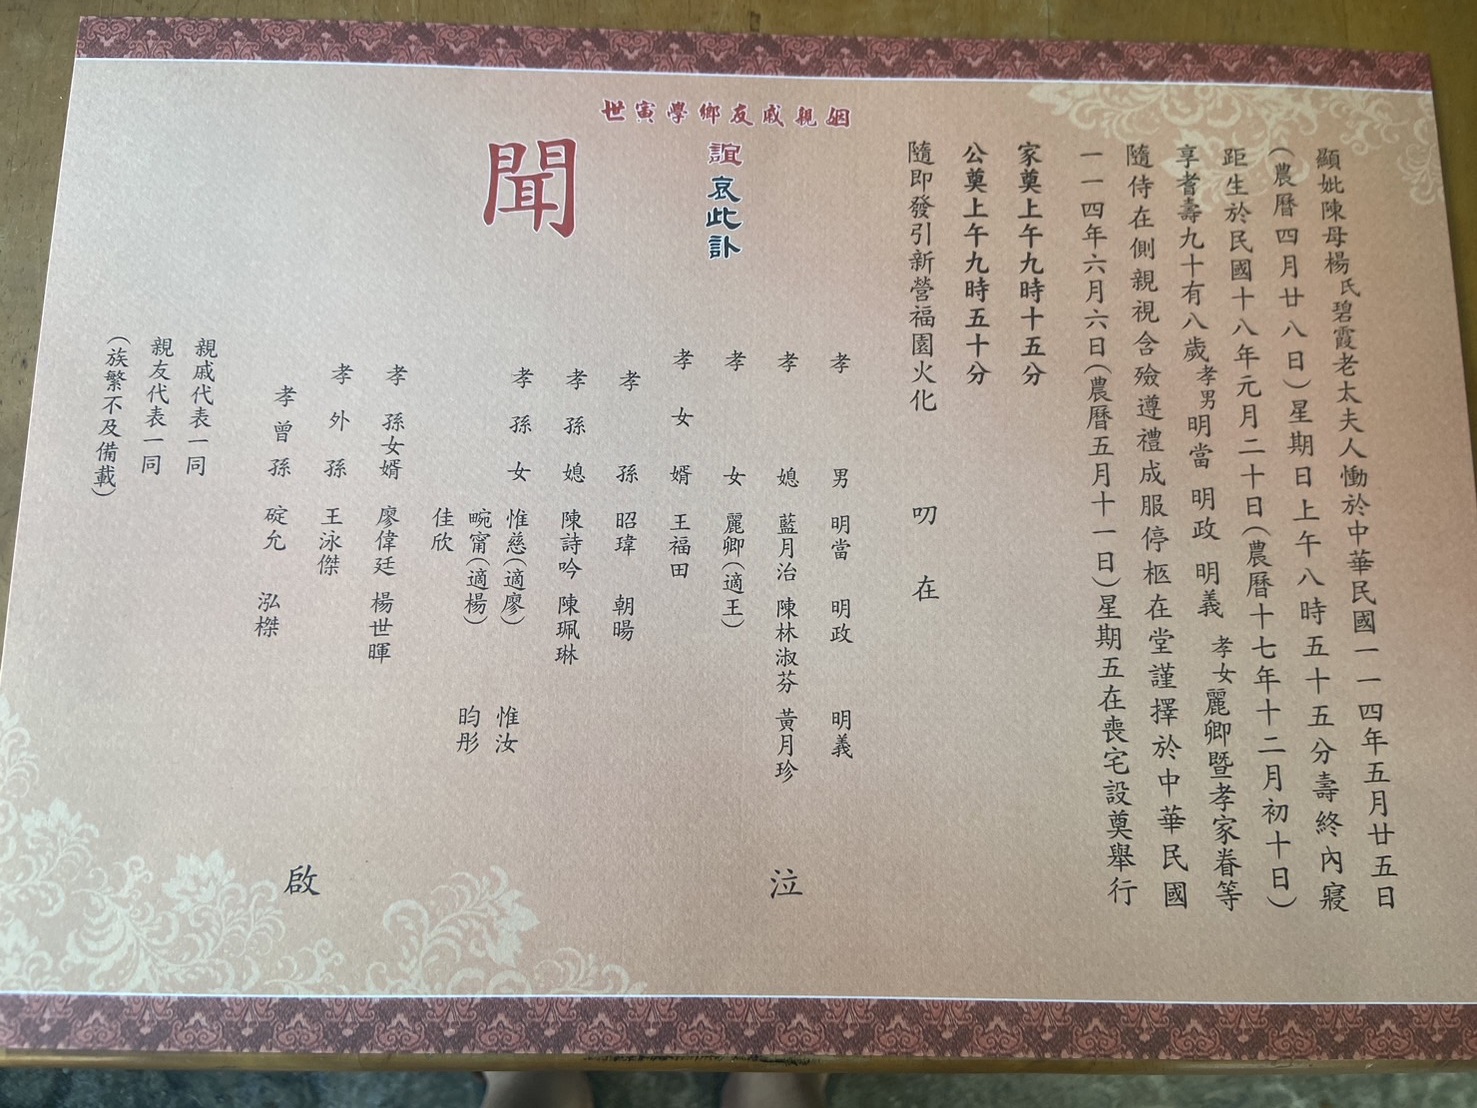 顯妣陳母楊氏碧霞老太夫人慟於中華民國一一四年五月廿五日
(農曆四月廿八日)星期日上午八時五十五分壽終內寢
距生於民國十八年元月二十日(農曆十七年十二月初十日)
享耆壽九十有八歲孝男明當 明政 明義 孝女麗卿暨孝家眷等
隨侍在側親視含殮遵禮成服停柩在堂謹擇於中華民國
一一四年六月六日(農曆五月十一日)星期五在喪宅設奠舉行
家奠上午九時十五分
公奠上午九時五十分
隨即發引新營福園火化
叨在
姻親戚友鄉學寅世
誼 哀此訃
聞
孝男 明當 明政 明義
孝媳 藍月治 陳林淑芬 黃月珍
孝女 麗卿(適王)
孝女婿 王福田
孝孫 昭瑋 朝暘
孝孫媳 陳詩吟 陳珮琳
孝孫女 惟慈(適廖) 惟汝
畹甯(適楊) 昀彤
佳欣
孝孫女婿 廖偉廷 楊世暉
孝外孫 王泳傑
孝曾孫 碇允 泓榤
泣
啟
親戚代表一同
親友代表一同
(族繁不及備載)